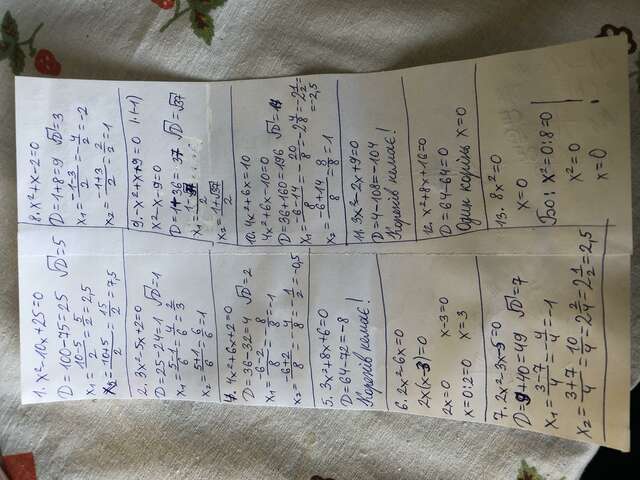 1. x²-10x+25=0
D=100-75=25 √D=5
x₁=10-5/2=5/2=2,5
x₂=10+5/2=15/2=7,5
2. 3x²-5x+2=0
D=25-24=1 √D=1
x₁=5-1/6=4/6=2/3
x₂=5+1/6=6/6=1
4. 4x²+6x+2=0
D=36-32=4 √D=2
x₁=-6-2/8=-8/8=-1
x₂=-6+2/8=-4/8=-1/2=-0,5
5. 3x²+8x+6=0
D=64-72=-8
Коренів немає!
6. 2x²-6x=0
2x(x-3)=0
2x=0 x-3=0
x=0:2=0 x=3
7. 2x²-3x-5=0
D=9+40=49 √D=7
x₁=3-7/4=-4/4=-1
x₂=3+7/4=10/4=2 2/4=2 1/2=2,5
8. x²+x-2=0
D=1+8=9 √D=3
x₁=-1-3/2=-4/2=-2
x₂=-1+3/2=2/2=1
9. -x²+x+9=0 |·(-1)
x²-x-9=0
D=1+36=37 √D=√37
x₁=1-√37/2
x₂=1+√37/2
10. 4x²+6x=10
4x²+6x-10=0
D=36+160=196 √D=14
x₁=-6-14/8=-20/8=-2 4/8=-2 1/2=
=-2,5
x₂=-6+14/8=8/8=1
11. 3x²-2x+9=0
D=4-108=-104
Коренів немає!
12. x²+8x+16=0
D=64-64=0
Один корінь x=0
13. 8x²=0
x=0
Бо: x²=0:8=0
x²=0
x=0